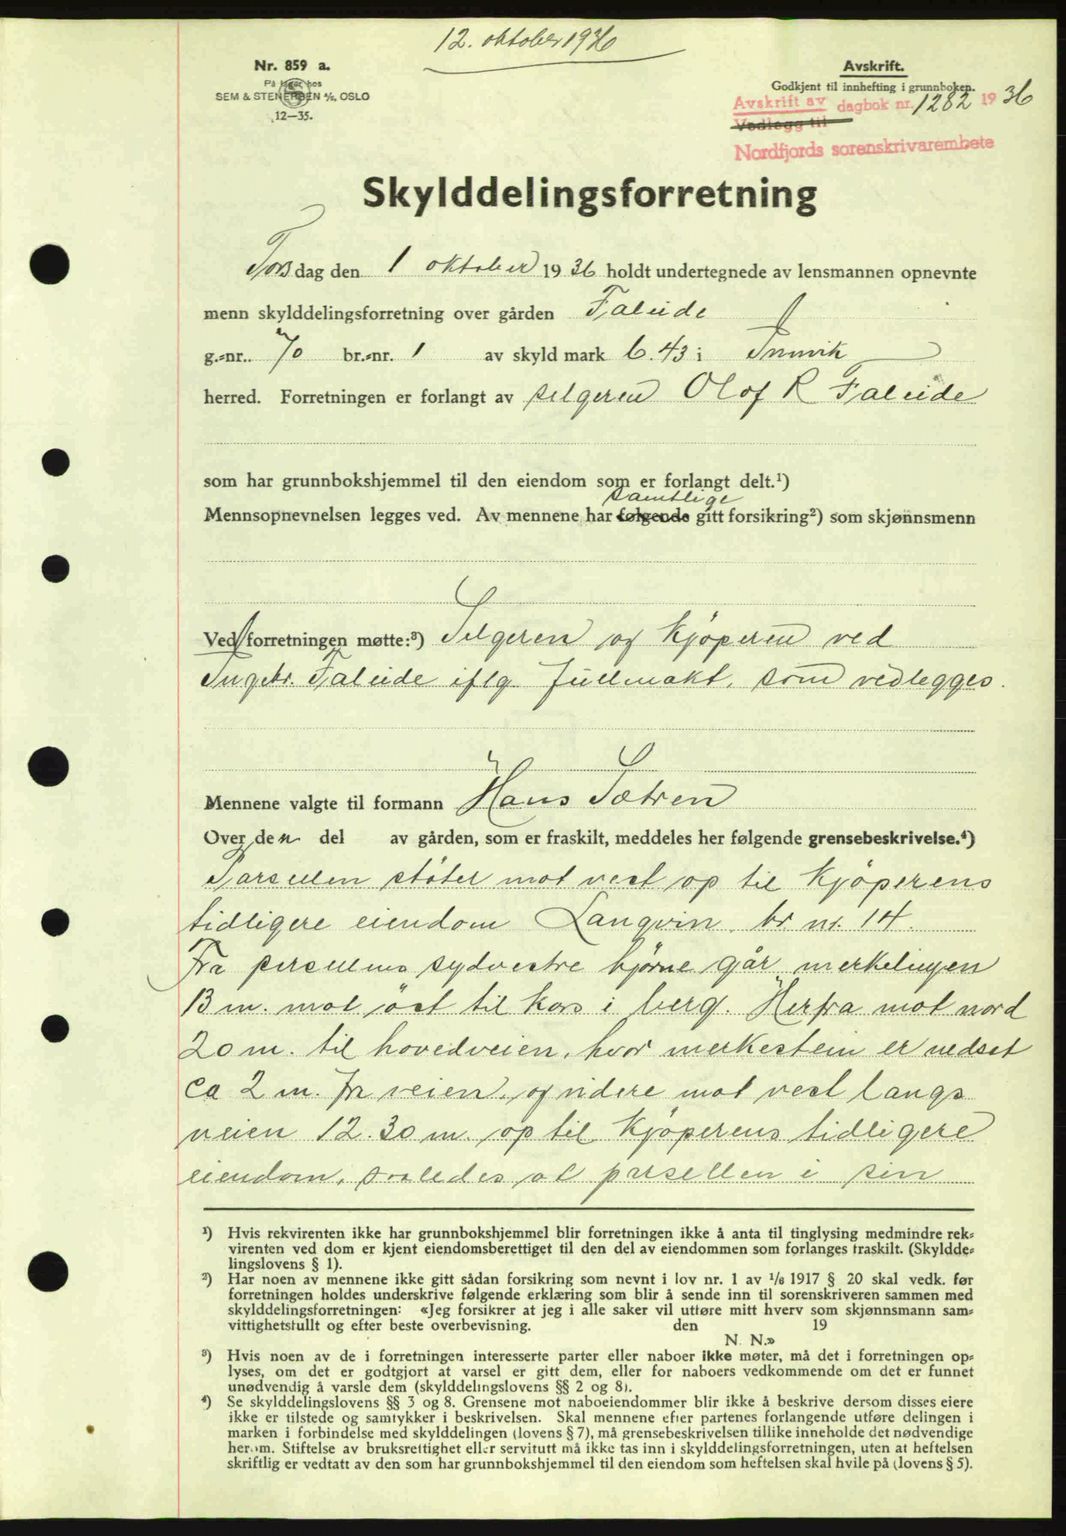 12. oktober 1936
Nr. 859 a.
På lager hos
SEM & STENERSEN A/S, OSLO
12—35.
Avskrift.
Godkjent til innhefting i grunnboken.
Avskrift av dagbok nr. 1282 1936
Vedlegg til
Nordfjords sorenskrivarembete
Skylddelingsforretning
Torsdag den 1 oktober 1936 holdt undertegnede av lensmannen opnevnte
menn skylddelingsforretning over gården Faleide
g.-nr. 70 br.-nr. 1 av skyld mark 6.43 i Innvik
herred. Forretningen er forlangt av selgeren Olof R Faleide
som har grunnbokshjemmel til den eiendom som er forlangt delt.¹)
samtlige
Mennsopnevnelsen legges ved. Av mennene har følgende gitt forsikring²) som skjønnsmenn
Ved forretningen møtte:³) Selgeren og kjöperen ved
Ingebr. Faleide iflg. fullmakt, som vedlegges.
Mennene valgte til formann Hans Sætren
Over den del av gården, som er fraskilt, meddeles her følgende grensebeskrivelse.⁴)
Parsellen stöter mot vest op til kjöperens
tidligere eiendom Langvin br. nr. 14.
Fra persellens sydvestre hjörne går merkelinjen
13 m. mot öst til kors i berg. Herfra mot nord
20 m. til hovedveien, hvor merkestein er nedsat
ca 2 m. fra veien, og videre mot vest langs
veien 12.30 m. op til kjöperens tidligere
eiendom, saaledes at parsellen i sin
¹) Hvis rekvirenten ikke har grunnbokshjemmel blir forretningen ikke å anta til tinglysing medmindre rek-
virenten ved dom er kjent eiendomsberettiget til den del av eiendommen som forlanges fraskilt. (Skyldde-
lingslovens § 1).
²) Har noen av mennene ikke gitt sådan forsikring som nevnt i lov nr. 1 av 1/6 1917 § 20 skal vedk. før
forretningen holdes underskrive følgende erklæring som blir å sende inn til sorenskriveren sammen med
skylddelingsforretningen: «Jeg forsikrer at jeg i alle saker vil utføre mitt hverv som skjønnsmann sam-
vittighetsfullt og efter beste overbevisning. den 19
N. N.»
³) Hvis noen av de i forretningen interesserte parter eller naboer ikke møter, må det i forretningen op-
lyses, om det er godtgjort at varsel er gitt dem, eller for naboers vedkommende om det er funnet
unødvendig å varsle dem (skylddelingslovens §§ 2 og 8).
⁴) Se skylddelingslovens §§ 3 og 8. Grensene mot naboeiendommer blir ikke å beskrive dersom disses eiere
ikke er tilstede og samtykker i beskrivelsen. Skal mennene efter partenes forlangende utføre delingen i
marken i forbindelse med skylddelingen (lovens § 7), må grensebeskrivelsen tillike inneholde det nødvendige
herom. Stiftelse av bruksrettighet eller servitutt må ikke tas inn i skylddelingsforretningen, uten at heftelsen
skriftlig er vedtatt av den som har grunnbokshjemmel til den eiendom som heftelsen skal hvile på (lovens § 5).